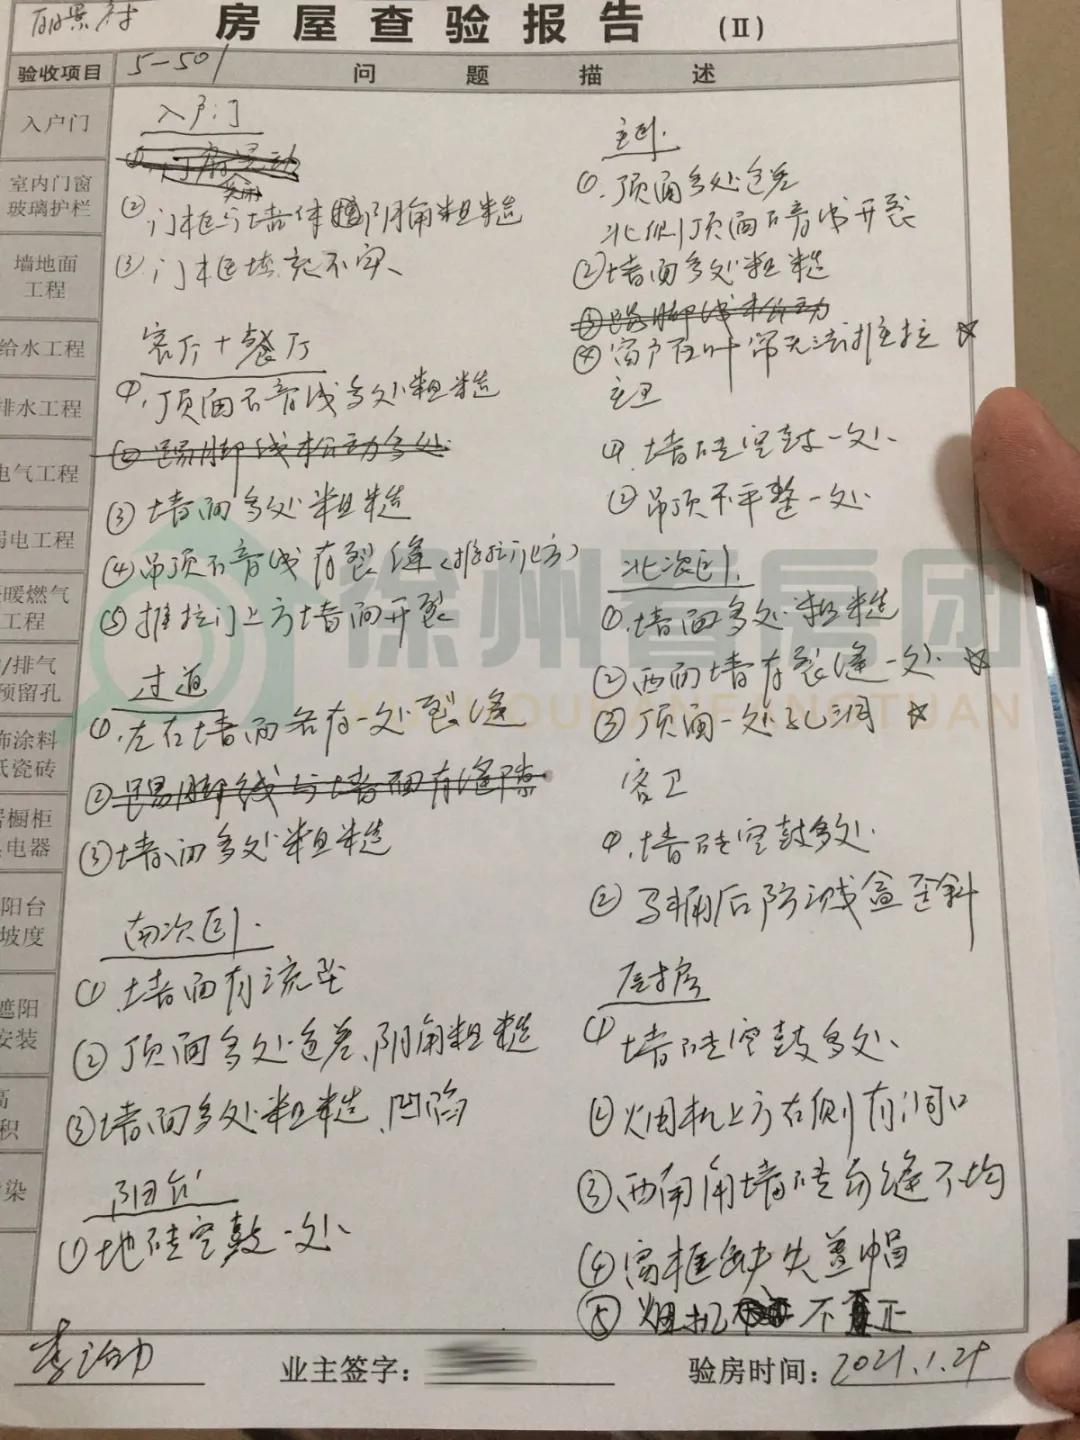 丽景村
房屋查验报告 (II)
验收项目
5-501
问题描述
入户门
室内门窗
玻璃护栏
墙地面
工程
给水工程
排水工程
电气工程
弱电工程
暖燃气
工程
/排气
预留孔
饰涂料
纸瓷砖
橱柜
电器
阳台
坡度
遮阳
安装
高
积
染
入户门
①.门扇晃动
②门框与墙体阴角粗糙
③门框填充不实、
客厅+餐厅
①.顶面石膏线多处粗糙
②踢脚线松动多处
③墙面多处粗糙
④吊顶石膏线有裂缝(推拉门上方)
⑤推拉门上方墙面开裂
过道
①.左右墙面各有一处裂缝
②踢脚线与墙面有缝隙
③墙面多处粗糙
南次卧.
①墙面有流坠
②顶面多处色差、阴角粗糙
③墙面多处粗糙、凹陷
阳台
①地砖空鼓一处、
主卧.
①.顶面多处色差
北侧顶面石膏线开裂
②墙面多处粗糙
③踢脚线松动
④窗户百叶帘无法推拉 ☆
主卫
①.墙砖空鼓一处、
②吊顶不平整一处.
北次卧.
①.墙面多处粗糙
②西面墙有裂缝一处. ☆
③顶面一处孔洞 ☆
客卫
①.墙砖空鼓多处.
②马桶后防溅盒歪斜
厨房
①墙砖空鼓多处、
②烟机上方右侧有洞口
③西南角墙砖勾缝不均
④窗框缺失盖帽
⑤烟机不正
业主签字:
验房时间: 2021.1.29
徐州房团
XUZHOUFANGTUAN